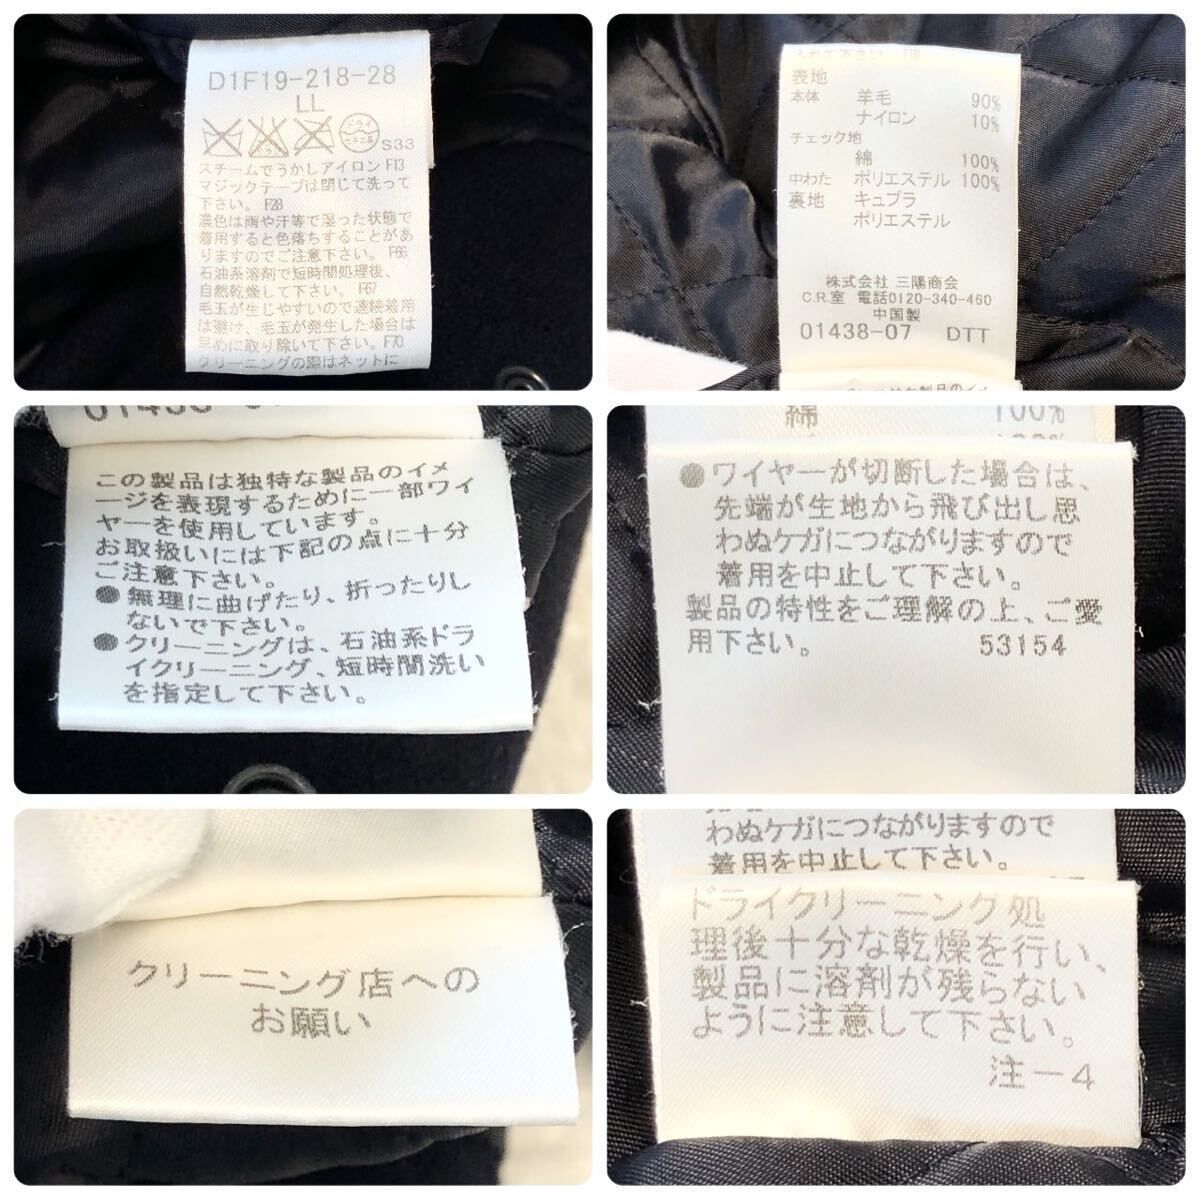 D1F19-218-28
LL
ドライ
セキユ系
S33
スチームでうかしアイロンF13
マジックテープは閉じて洗って
下さい。F28
濃色は雨や汗等で湿った状態で
着用すると色落ちすることがあ
りますのでご注意下さい。F66
石油系溶剤で短時間処理後、
自然乾燥して下さい。F67
毛玉が生じやすいので連続着用
は避け、毛玉が発生した場合は
早めに取り除いて下さい。F70
クリーニングの際はネットに
入れて下さい。
表地
本体 羊毛 90%
ナイロン 10%
チェック地
綿 100%
中わた ポリエステル 100%
裏地 キュプラ
ポリエステル
株式会社 三陽商会
C.R.室 電話0120-340-460
中国製
01438-07 DTT
この製品は独特な製品のイメ
ージを表現するために一部ワイ
ヤーを使用しています。
お取扱いには下記の点に十分
ご注意下さい。
●無理に曲げたり、折ったりし
ないで下さい。
●クリーニングは、石油系ドラ
イクリーニング、短時間洗い
を指定して下さい。
綿 100%
●ワイヤーが切断した場合は、
先端が生地から飛び出し思
わぬケガにつながりますので
着用を中止して下さい。
製品の特性をご理解の上、ご愛
用下さい。 53154
クリーニング店への
お願い
わぬケガにつながりますので
着用を中止して下さい。
ドライクリーニング処
理後十分な乾燥を行い、
製品に溶剤が残らない
ように注意して下さい。
注-4